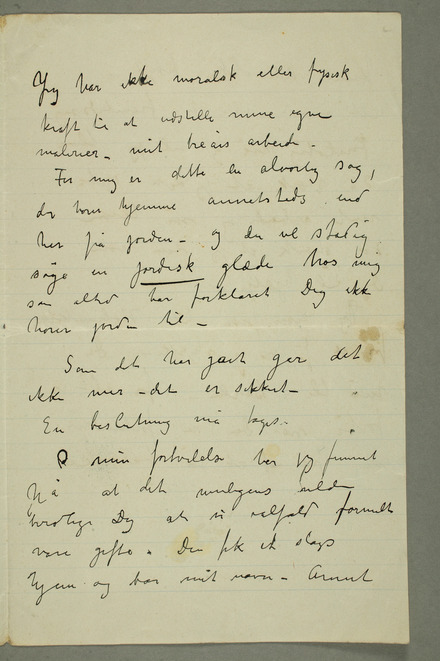 Jeg har ikke moralsk eller fysisk
kraft til at udstille mine egne
malerier – mit tre års arbeide –
For mig er dette en alvorlig sag,
der hører hjemme annetsteds end
her på jorden – og du vil stadig
søge en jordisk glæde hos mig
som altid har forklaret Dig ikk
hører jorden til –
Som det har gået går det
ikke mer – det er sikkert –
En beslutning må tages.
I min fortvilelse har jeg funnet
på at det muligens vilde
berolige Dig at vi ialfald formelt
vare gifte. Du fik et slags
hjem og bar mit navn – Annet